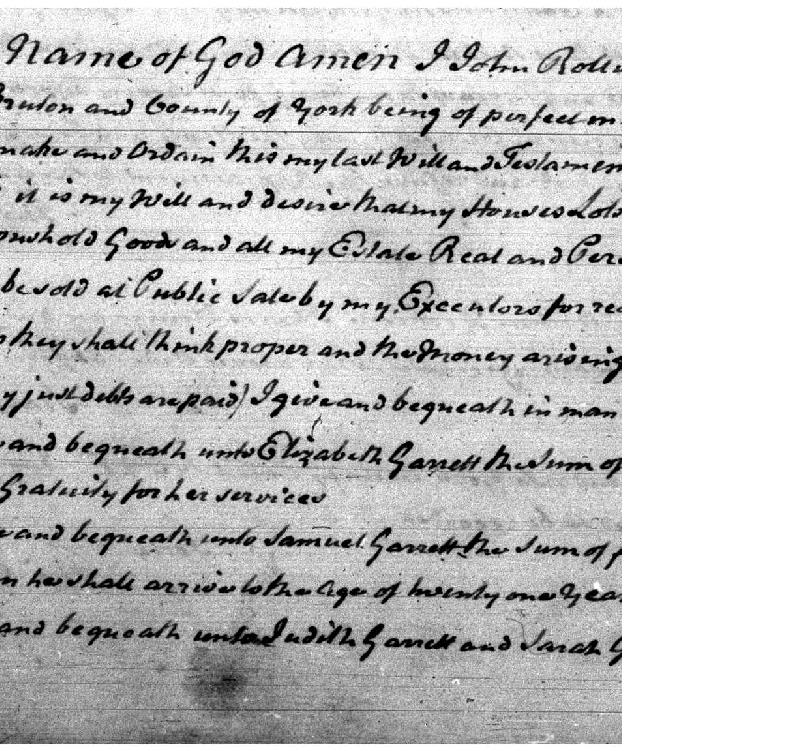 Name of God Amen I John
and County of York being of perfect
make and Ordain this my last Will and
it is my Will and desire that my Houses Lots
Good and all my Estate Real and
be sold at Public Sale by my Executors for
they shall think proper and the Money arising
just debts are paid) I give and bequeath in man
and bequeath unto Elizabeth Garrett the Sum of
Gratuity for her services
and bequeath unto Samuel Garrett the Sum of
he shall arrive to the Age of twenty one
and bequeath unto Judith Garrett and Sarah G